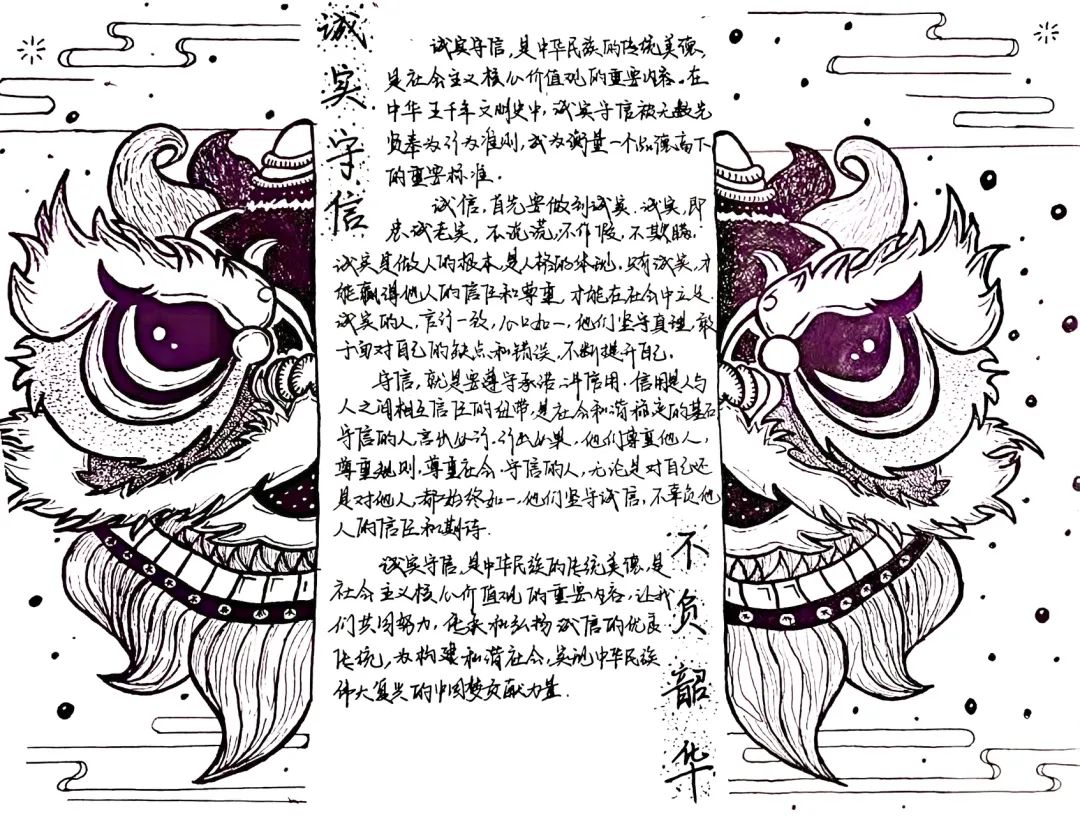 诚实守信
诚实守信,是中华民族的传统美德,
是社会主义核心价值观的重要内容。在
中华五千年文明史中,诚实守信被无数先
贤奉为行为准则,成为衡量一个人品德高下
的重要标准。
诚信,首先要做到诚实。诚实,即
忠诚老实,不说谎,不作假,不欺瞒。
诚实是做人的根本,是人格的体现,只有诚实,才
能赢得他人的信任和尊重,才能在社会中立足。
诚实的人,言行一致,心口如一,他们坚守真理,敢
于面对自己的缺点和错误,不断提升自己。
守信,就是要遵守承诺,讲信用。信用是人与
人之间相互信任的纽带,是社会和谐稳定的基石
守信的人,言出必行,行出必果,他们尊重他人,
尊重规则,尊重社会。守信的人,无论是对自己还
是对他人,都始终如一,他们坚守诚信,不辜负他
人的信任和期待。
诚实守信,是中华民族的传统美德,是
社会主义核心价值观的重要内容,让我
们共同努力,传承和弘扬诚信的优良
传统,为构建和谐社会,实现中华民族
伟大复兴的中国梦贡献力量.
不负韶华